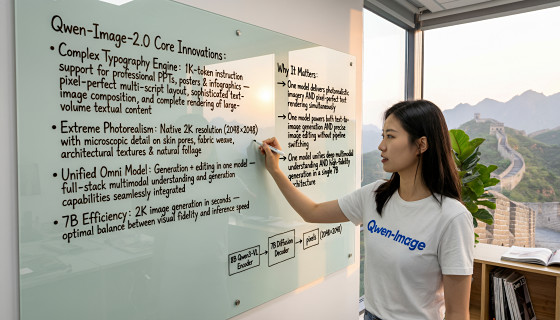 Qwen-Image-2.0 Core Innovations:
• Complex Typography Engine: 1K-token instruction
support for professional PPTs, posters & infographics —
pixel-perfect multi-script layout, sophisticated text-
image composition, and complete rendering of large-
volume textual content
• Extreme Photorealism: Native 2K resolution (2048×2048)
with microscopic detail on skin pores, fabric weave,
architectural textures & natural foliage
• Unified Omni Model: Generation + editing in one model —
full-stack multimodal understanding and generation
capabilities seamlessly integrated
• 7B Efficiency: 2K image generation in seconds —
optimal balance between visual fidelity and inference speed
Why It Matters:
→ One model delivers photorealistic
imagery AND pixel-perfect text
rendering simultaneously
→ One model powers both text-to-
image generation AND precise
image editing without pipeline
switching
→ One model unifies deep multimodal
understanding AND high-fidelity
generation in a single 7B
architecture
8B Qwen3-VL
Encoder
→
7B Diffusion
Decoder
→
pixels
(2048×2048)
Qwen-Image